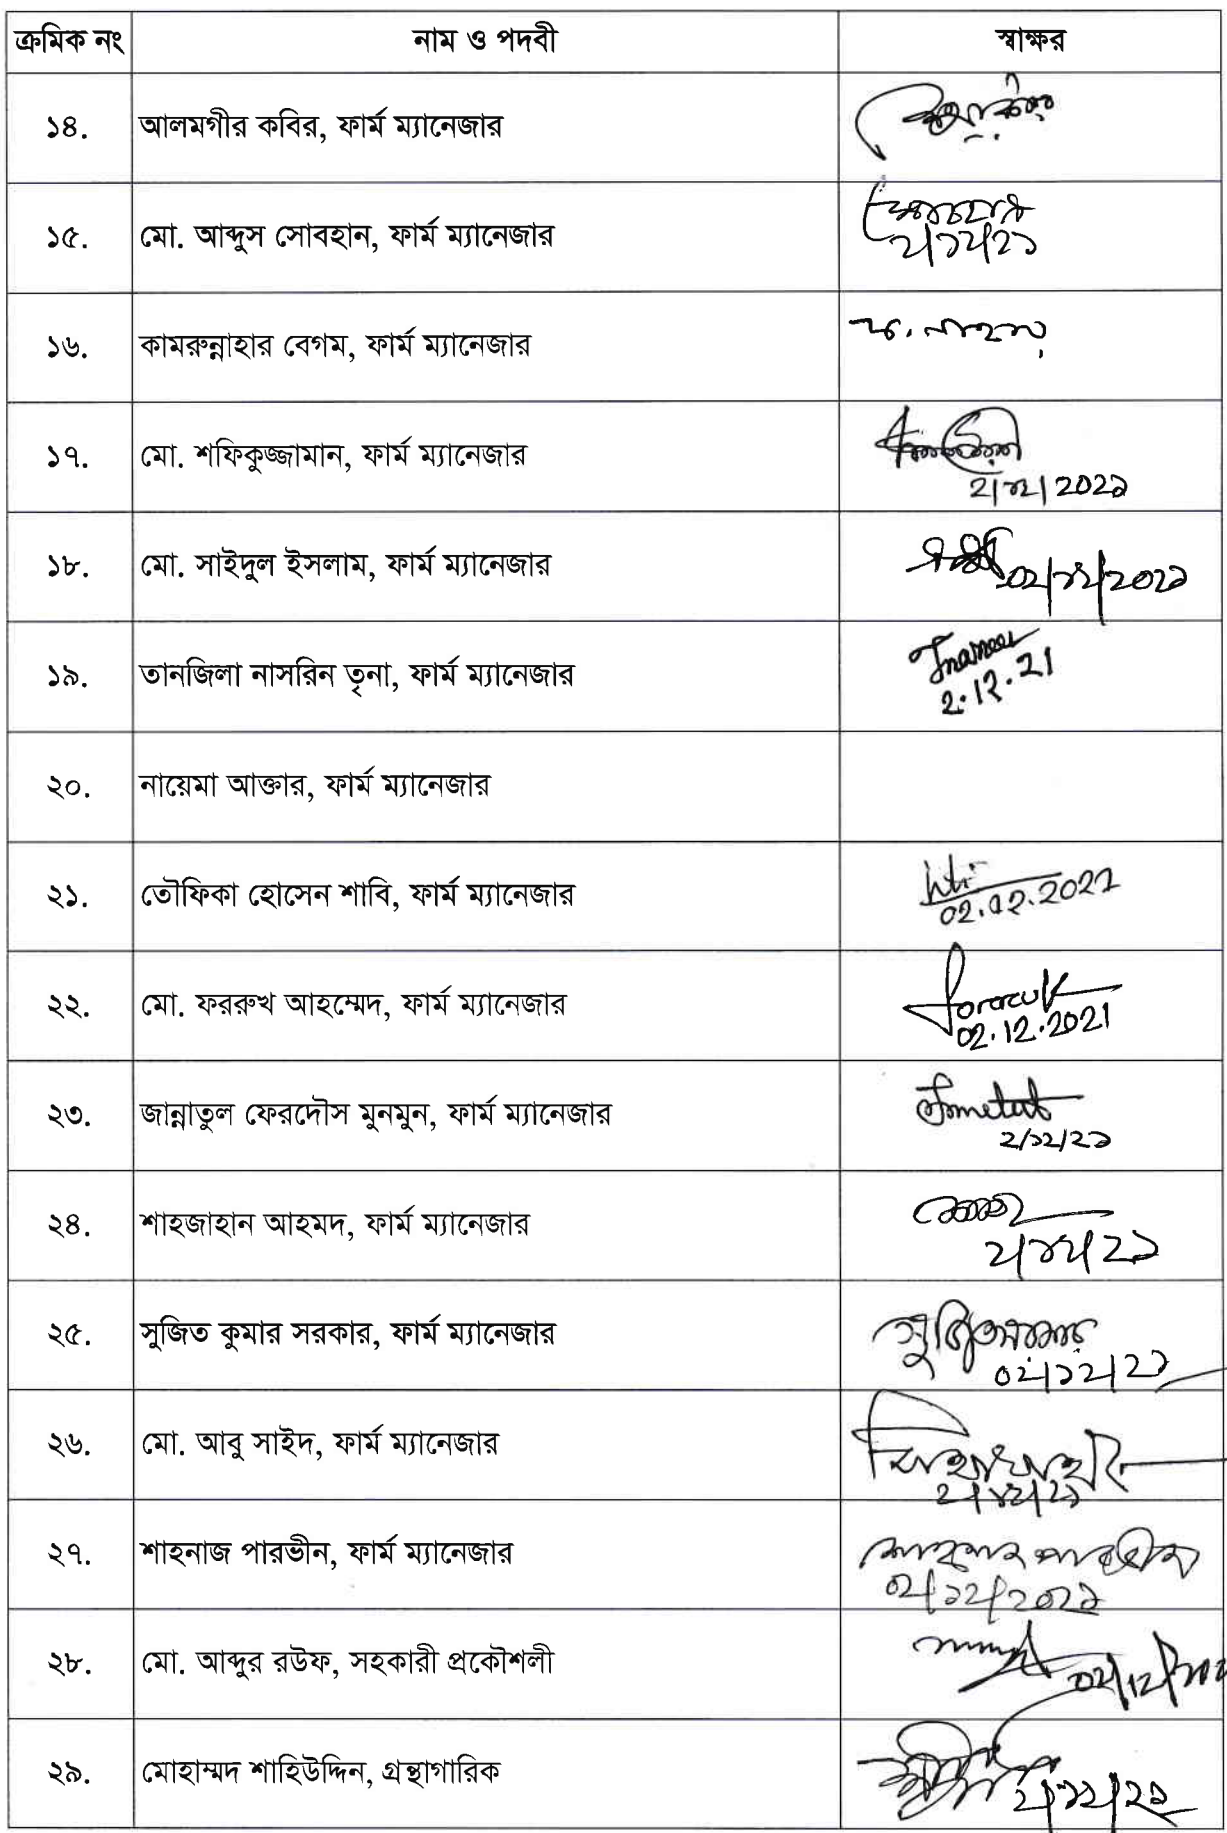 ক্রমিক নং নাম ও পদবী স্বাক্ষর
১৪. আলমগীর কবির, ফার্ম ম্যানেজার
১৫. মো. আব্দুস সোবহান, ফার্ম ম্যানেজার
২/১২/২১
১৬. কামরুন্নাহার বেগম, ফার্ম ম্যানেজার ক. নাহার
১৭. মো. শফিকুজ্জামান, ফার্ম ম্যানেজার
২/১২/২০২১
১৮. মো. সাইদুল ইসলাম, ফার্ম ম্যানেজার ০২/১২/২০২১
১৯. তানজিলা নাসরিন তৃনা, ফার্ম ম্যানেজার
2.12.21
২০. নায়েমা আক্তার, ফার্ম ম্যানেজার
২১. তৌফিকা হোসেন শাবি, ফার্ম ম্যানেজার
০২.১২.২০২১
২২. মো. ফররুখ আহম্মেদ, ফার্ম ম্যানেজার
02.12.2021
২৩. জান্নাতুল ফেরদৌস মুনমুন, ফার্ম ম্যানেজার
২/১২/২১
২৪. শাহজাহান আহমদ, ফার্ম ম্যানেজার
২/১২/২১
২৫. সুজিত কুমার সরকার, ফার্ম ম্যানেজার
০২/১২/২১
২৬. মো. আবু সাইদ, ফার্ম ম্যানেজার
২/১২/২১
২৭. শাহনাজ পারভীন, ফার্ম ম্যানেজার শাহনাজ পারভীন
০২/১২/২০২১
২৮. মো. আব্দুর রউফ, সহকারী প্রকৌশলী
২৯. মোহাম্মদ শাহিউদ্দিন, গ্রন্থাগারিক
২/১২/২১